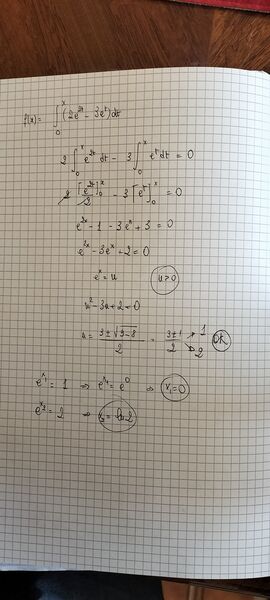 f(x) = ∫₀ˣ (2e²ᵗ - 3eᵗ) dt
2 ∫₀ˣ e²ᵗ dt - 3 ∫₀ˣ eᵗ dt = 0
2 [e²ᵗ/2]₀ˣ - 3 [eᵗ]₀ˣ = 0
e²ˣ - 1 - 3eˣ + 3 = 0
e²ˣ - 3eˣ + 2 = 0
eˣ = u u>0
u² - 3u + 2 = 0
u = (3 ± √(9-8))/2 = (3 ± 1)/2 → 1 → 2 OK
eˣ¹ = 1 ⇒ eˣ¹ = e⁰ ⇒ x₁ = 0
eˣ² = 2 ⇒ x₂ = ln 2